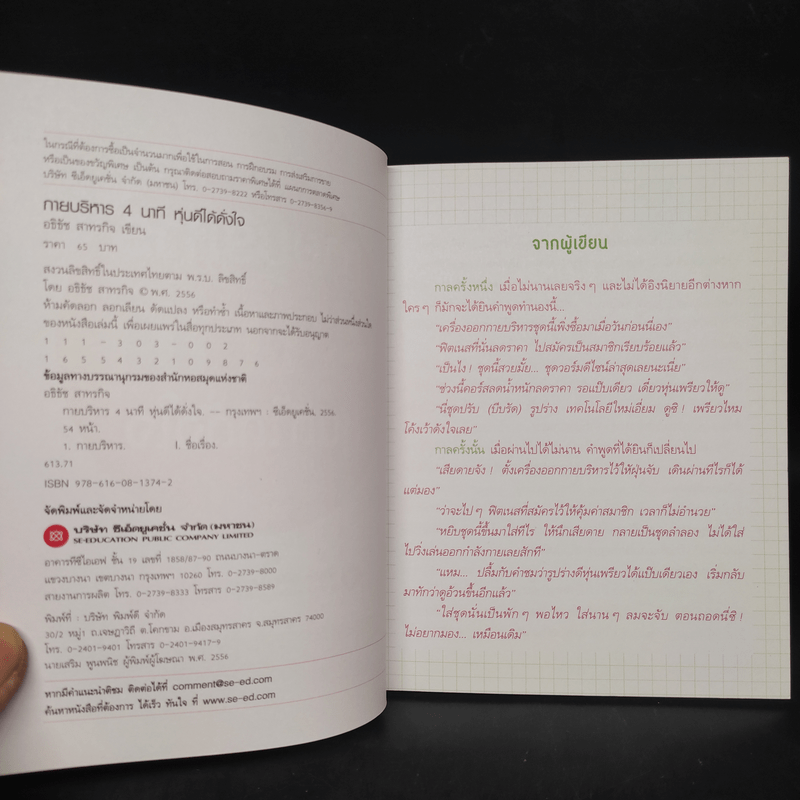 ในกรณีที่ต้องการซื้อเป็นจำนวนมากเพื่อใช้ในการสอน การฝึกอบรม การส่งเสริมการขาย
หรือเป็นของขวัญพิเศษ เป็นต้น กรุณาติดต่อสอบถามราคาพิเศษได้ที่ แผนกการตลาดพิเศษ
บริษัท ซีเอ็ดยูเคชั่น จำกัด (มหาชน) โทร. 0-2739-8222 หรือโทรสาร 0-2739-8356-9
กายบริหาร 4 นาที หุ่นดีได้ดั่งใจ
อธิธัช สาทรกิจ เขียน
ราคา 65 บาท
สงวนลิขสิทธิ์ในประเทศไทยตาม พ.ร.บ. ลิขสิทธิ์
โดย อธิธัช สาทรกิจ © พ.ศ. 2556
ห้ามคัดลอก ลอกเลียน ดัดแปลง หรือทำซ้ำ เนื้อหาและภาพประกอบ ไม่ว่าส่วนหนึ่งส่วนใด
ของหนังสือเล่มนี้ เพื่อเผยแพร่ในสื่อทุกประเภท นอกจากจะได้รับอนุญาต
1 1 1 - 3 0 3 - 0 0 2
1 6 5 5 4 3 2 1 0 9 8 7 6
ข้อมูลทางบรรณานุกรมของสำนักหอสมุดแห่งชาติ
อธิธัช สาทรกิจ
กายบริหาร 4 นาที หุ่นดีได้ดั่งใจ. -- กรุงเทพฯ : ซีเอ็ดยูเคชั่น, 2556.
54 หน้า.
1. กายบริหาร. I. ชื่อเรื่อง.
613.71
ISBN 978-616-08-1374-2
จัดพิมพ์และจัดจำหน่ายโดย
บริษัท ซีเอ็ดยูเคชั่น จำกัด (มหาชน)
SE-EDUCATION PUBLIC COMPANY LIMITED
อาคารทีซีไอเอฟ ชั้น 19 เลขที่ 1858/87-90 ถนนบางนา-ตราด
แขวงบางนา เขตบางนา กรุงเทพฯ 10260 โทร. 0-2739-8000
สายงานการผลิต โทร. 0-2739-8333 โทรสาร 0-2739-8589
พิมพ์ที่ : บริษัท พิมพ์ดี จำกัด
30/2 หมู่1 ถ.เจษฎาวิถี ต.โคกขาม อ.เมืองสมุทรสาคร จ.สมุทรสาคร 74000
โทร. 0-2401-9401 โทรสาร 0-2401-9417-9
นายเสริม พูนพนิช ผู้พิมพ์ผู้โฆษณา พ.ศ. 2556
หากมีคำแนะนำติชม ติดต่อได้ที่ comment@se-ed.com
ค้นหาหนังสือที่ต้องการ ได้เร็ว ทันใจ ที่ www.se-ed.com
จากผู้เขียน
กาลครั้งหนึ่ง เมื่อไม่นานเลยจริงๆ และไม่ได้อิงนิยายอีกต่างหาก
ใครๆ ก็มักจะได้ยินคำพูดทำนองนี้...
"เครื่องออกกายบริหารชุดนี้เพิ่งซื้อมาเมื่อวันก่อนนี้เอง"
"ฟิตเนสที่นั่นลดราคา ไปสมัครเป็นสมาชิกเรียบร้อยแล้ว"
"เป็นไง! ชุดนี้สวยมั้ย... ชุดวอร์มดีไซน์ล่าสุดเลยนะเนี่ย"
"ช่วงนี้คอร์สลดน้ำหนักลดราคา รอแป๊บเดียว เดี๋ยวหุ่นเพรียวให้ดู"
"นี่ชุดปรับ (บีบรัด) รูปร่าง เทคโนโลยีใหม่เอี่ยม ดูซิ! เพรียวไหม
โค้งเว้าดั่งใจเลย"
กาลครั้งนั้น เมื่อผ่านไปได้ไม่นาน คำพูดที่ได้ยินก็เปลี่ยนไป
"เสียดายจัง! ตั้งเครื่องออกกายบริหารไว้ให้ฝุ่นจับ เดินผ่านทีไรก็ได้
แต่มอง"
"ว่าจะไปๆ ฟิตเนสที่สมัครไว้ให้คุ้มค่าสมาชิก เวลาก็ไม่อำนวย"
"หยิบชุดนี้ขึ้นมาใส่ทีไร ให้นึกเสียดาย กลายเป็นชุดลำลอง ไม่ได้ใส่
ไปวิ่งเล่นออกกำลังกายเลยสักที"
"แหม... ปลื้มกับคำชมว่ารูปร่างดีหุ่นเพรียวได้แป๊บเดียวเอง เริ่มกลับ
มาทักว่าดูอ้วนขึ้นอีกแล้ว"
"ใส่ชุดนั่นเป็นพักๆ พอไหว ใส่นานๆ ลมจะจับ ตอนถอดนี่ซิ!
ไม่อยากมอง... เหมือนเดิม"